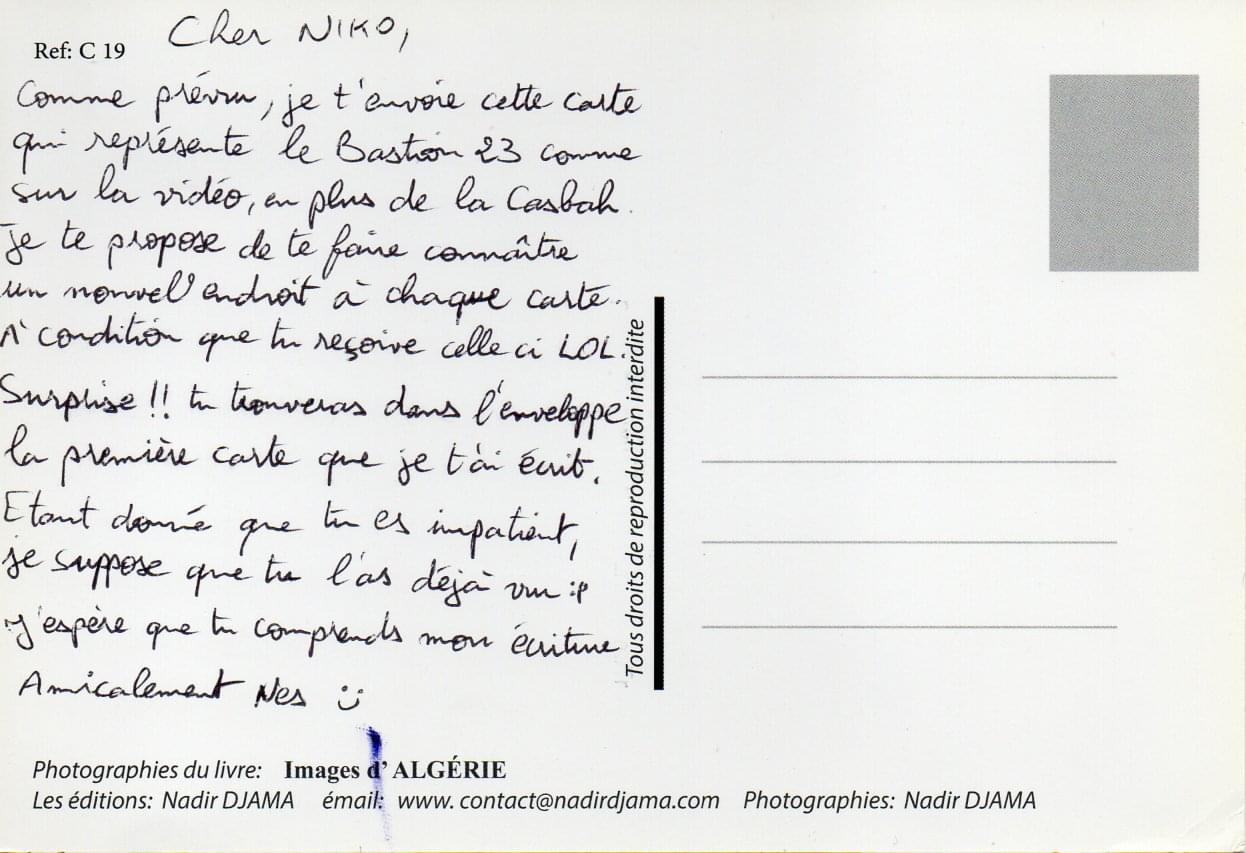 Ref: C 19
Cher NIKO,
Comme prévu, je t'envoie cette carte
qui représente le Bastion 23 comme
sur la vidéo, en plus de la Casbah.
Je te propose de te faire connaître
un nouvel endroit à chaque carte.
A condition que tu reçoive celle ci LOL.
Surprise !! tu trouveras dans l'enveloppe
la première carte que je t'ai écrit.
Etant donné que tu es impatient,
je suppose que tu l'as déjà vu :p
J'espère que tu comprends mon écriture
Amicalement Nes :)
Tous droits de reproduction interdite
Photographies du livre: Images d' ALGÉRIE
Les éditions: Nadir DJAMA émail: www. contact@nadirdjama.com Photographies: Nadir DJAMA